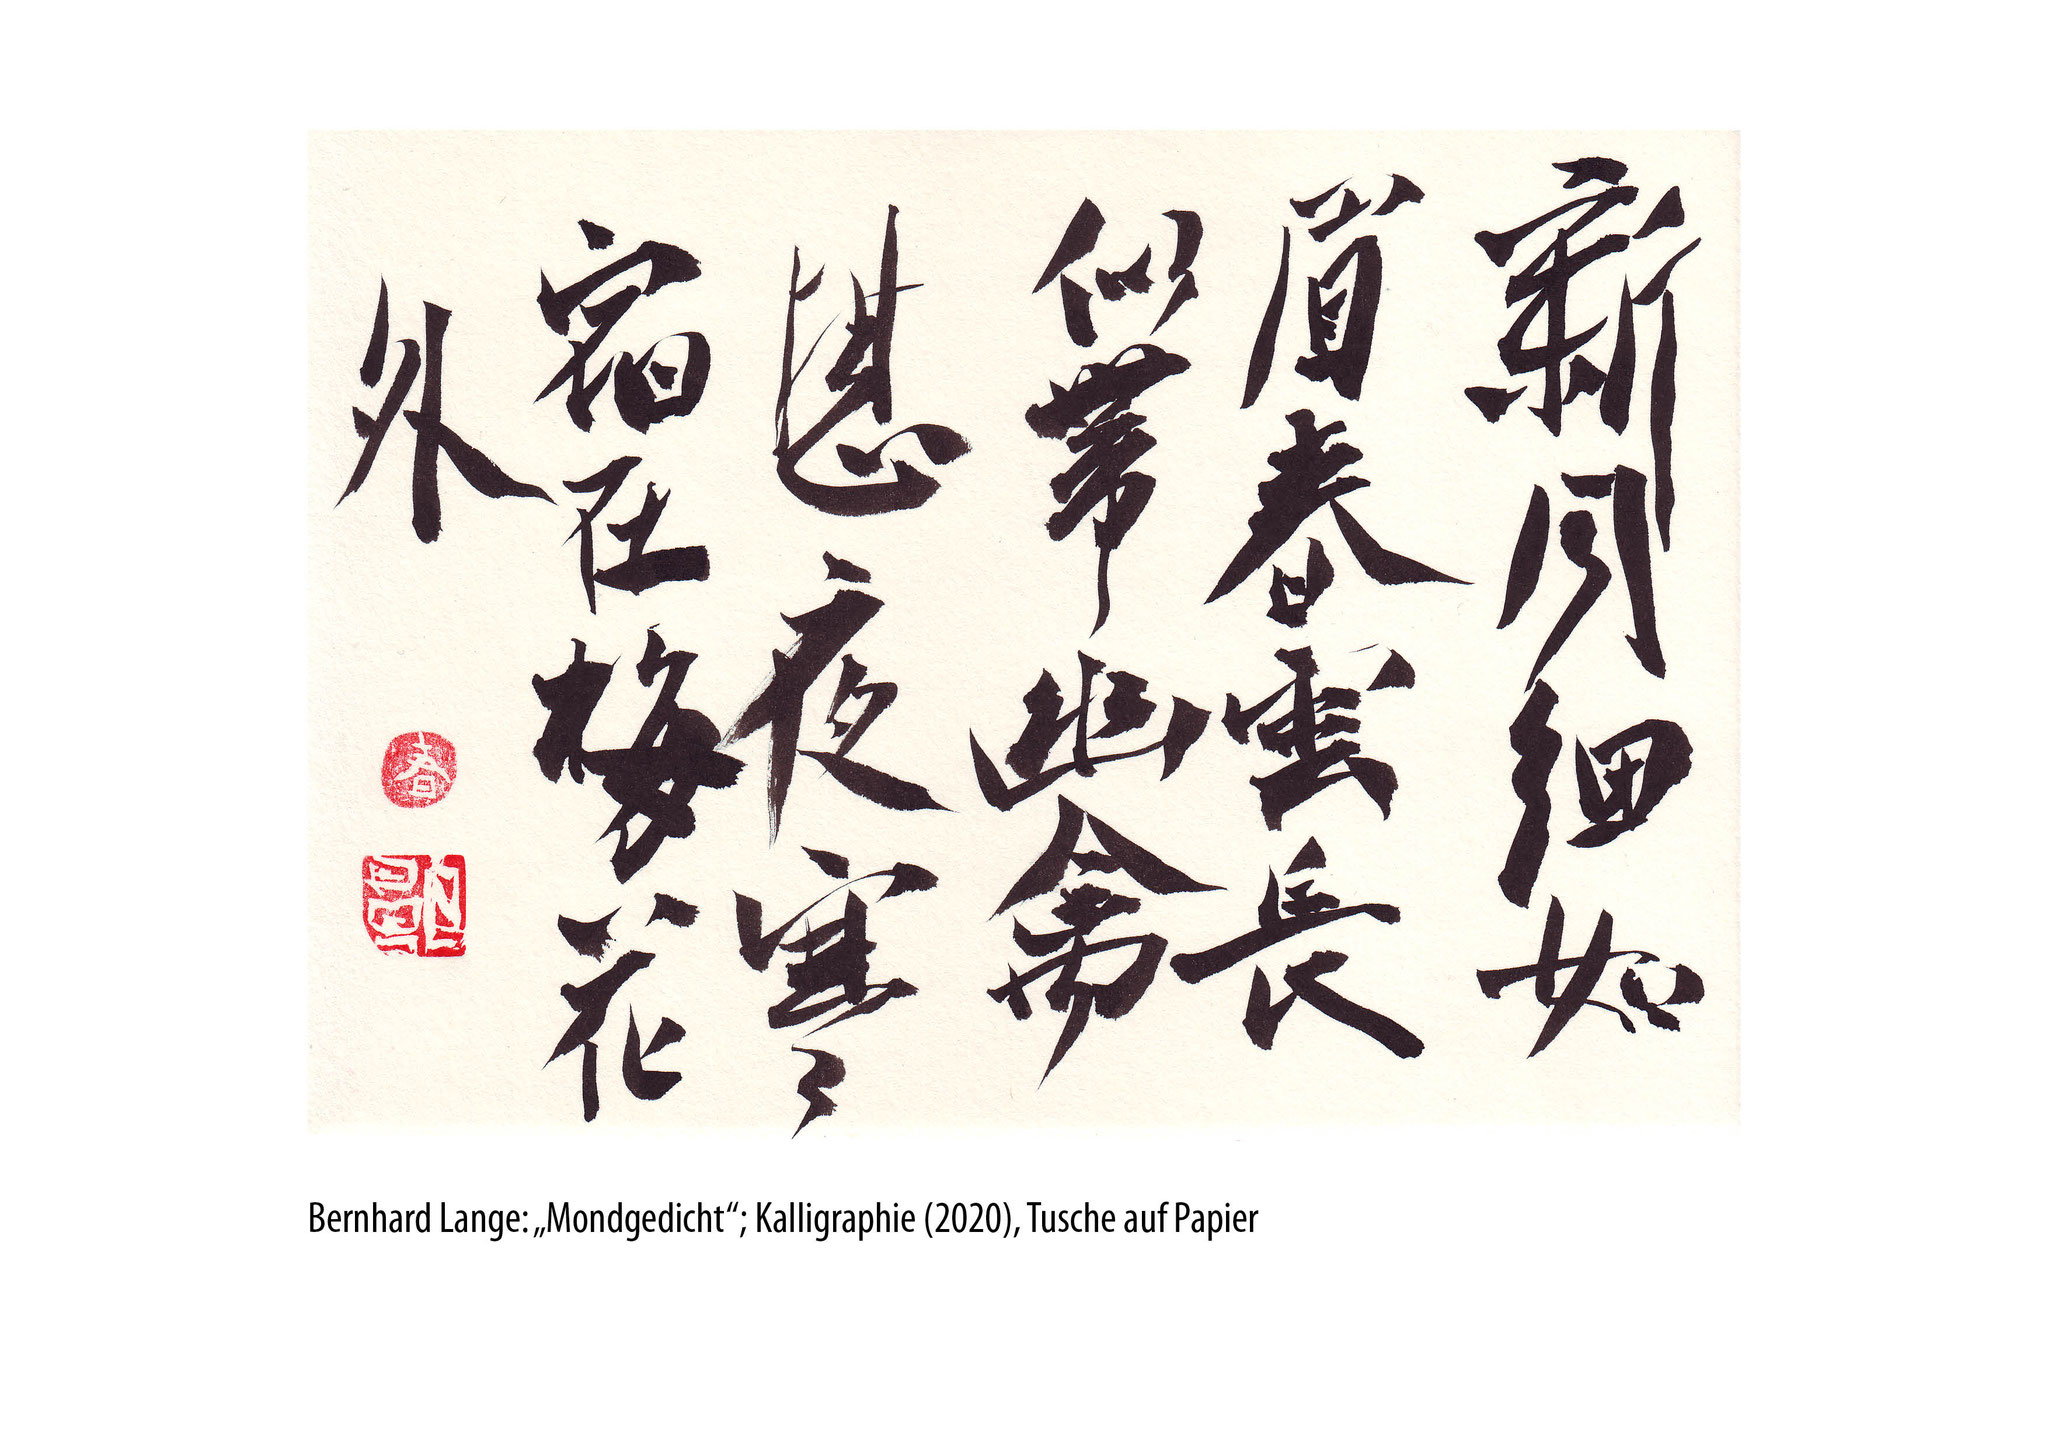 新月細如
眉春雲長
似帶幽禽
夜寒
宿在梅花
外
春
Bernhard Lange: „Mondgedicht“; Kalligraphie (2020), Tusche auf Papier